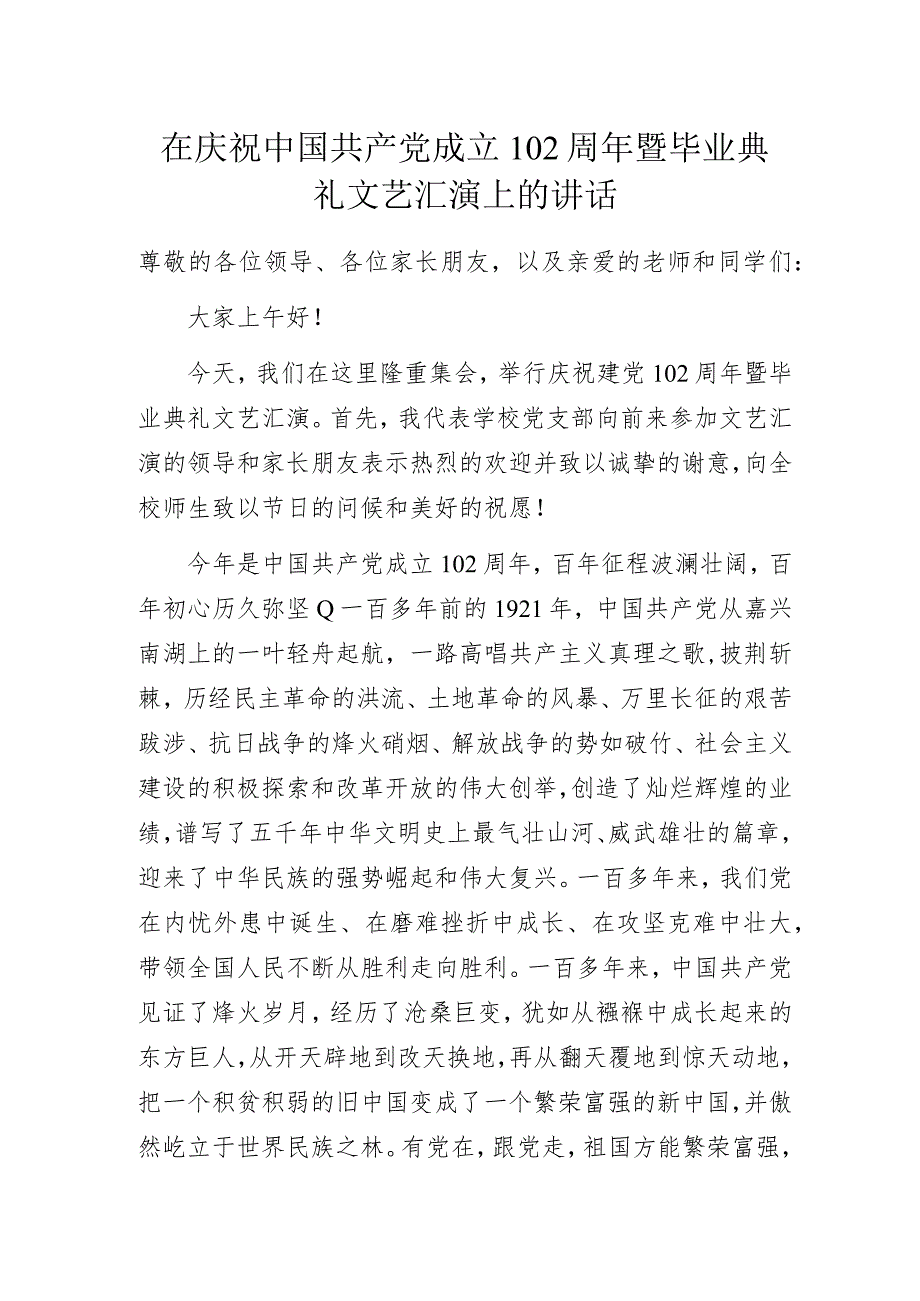 在庆祝中国共产党成立 102 周年暨毕业典
礼文艺汇演上的讲话
尊敬的各位领导、各位家长朋友，以及亲爱的老师和同学们：
大家上午好！
今天，我们在这里隆重集会，举行庆祝建党 102 周年暨毕
业典礼文艺汇演。首先，我代表学校党支部向前来参加文艺汇
演的领导和家长朋友表示热烈的欢迎并致以诚挚的谢意，向全
校师生致以节日的问候和美好的祝愿！
今年是中国共产党成立 102 周年，百年征程波澜壮阔，百
年初心历久弥坚Q一百多年前的 1921 年，中国共产党从嘉兴
南湖上的一叶轻舟起航，一路高唱共产主义真理之歌,披荆斩
棘，历经民主革命的洪流、土地革命的风暴、万里长征的艰苦
跋涉、抗日战争的烽火硝烟、解放战争的势如破竹、社会主义
建设的积极探索和改革开放的伟大创举，创造了灿烂辉煌的业
绩，谱写了五千年中华文明史上最气壮山河、威武雄壮的篇章，
迎来了中华民族的强势崛起和伟大复兴。一百多年来，我们党
在内忧外患中诞生、在磨难挫折中成长、在攻坚克难中壮大，
带领全国人民不断从胜利走向胜利。一百多年来，中国共产党
见证了烽火岁月，经历了沧桑巨变，犹如从襁褓中成长起来的
东方巨人，从开天辟地到改天换地，再从翻天覆地到惊天动地，
把一个积贫积弱的旧中国变成了一个繁荣富强的新中国，并傲
然屹立于世界民族之林。有党在，跟党走，祖国方能繁荣富强，